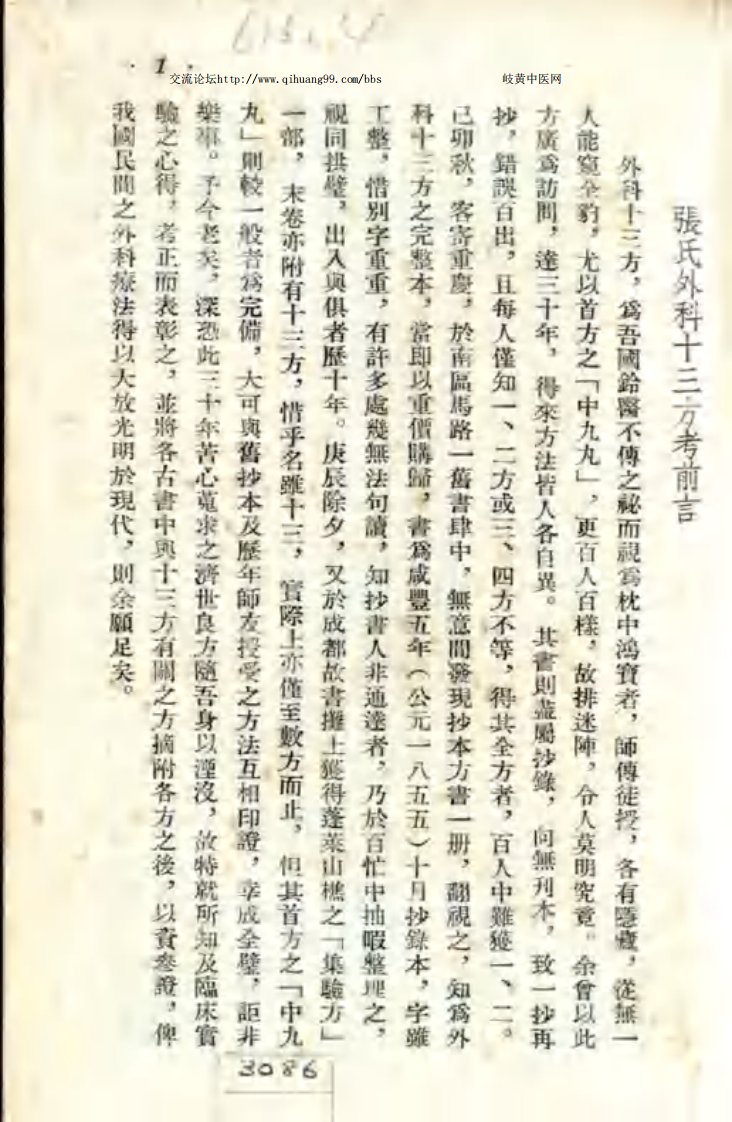 1
交流论坛http://www.qihuang99.com/bbs 岐黄中医网
張氏外科十三方考前言
外科十三方，爲吾國鈴醫不傳之祕而視爲枕中鴻寶者，師傳徒授，各有隱藏，從無一
人能窺全豹，尤以首方之「中九九」，更百人百樣，故排迷陣，令人莫明究竟。余曾以此
方廣爲訪問，達三十年，得來方法皆人各自異。其書則盡屬抄錄，向無刋本，致一抄再
抄，錯誤百出，且每人僅知一、二方或三、四方不等，得其全方者，百人中難獲一、二。
己卯秋，客寄重慶，於南區馬路一舊書肆中，無意間發現抄本方書一册，翻視之，知爲外
科十三方之完整本，當卽以重價購歸，書爲咸豐五年（公元一八五五）十月抄錄本，字雖
工整，惜別字重重，有許多處幾無法句讀，知抄書人非通達者，乃於百忙中抽暇整理之，
視同拱璧，出入與俱者歷十年。庚辰除夕，又於成都故書攤上獲得蓬萊山樵之「集驗方」
一部，末卷亦附有十三方，惜乎名雖十三，實際上亦僅至數方而止，但其首方之「中九
丸」則較一般者爲完備，大可與舊抄本及歷年師友授受之方法互相印證，幸成全璧，詎非
樂事。予今老矣，深恐此三十年苦心蒐求之濟世良方隨吾身以湮沒，故特就所知及臨床實
驗之心得，考正而表彰之，並將各古書中與十三方有關之方摘附各方之後，以資參證，俾
我國民間之外科療法得以大放光明於現代，則余願足矣。
3086